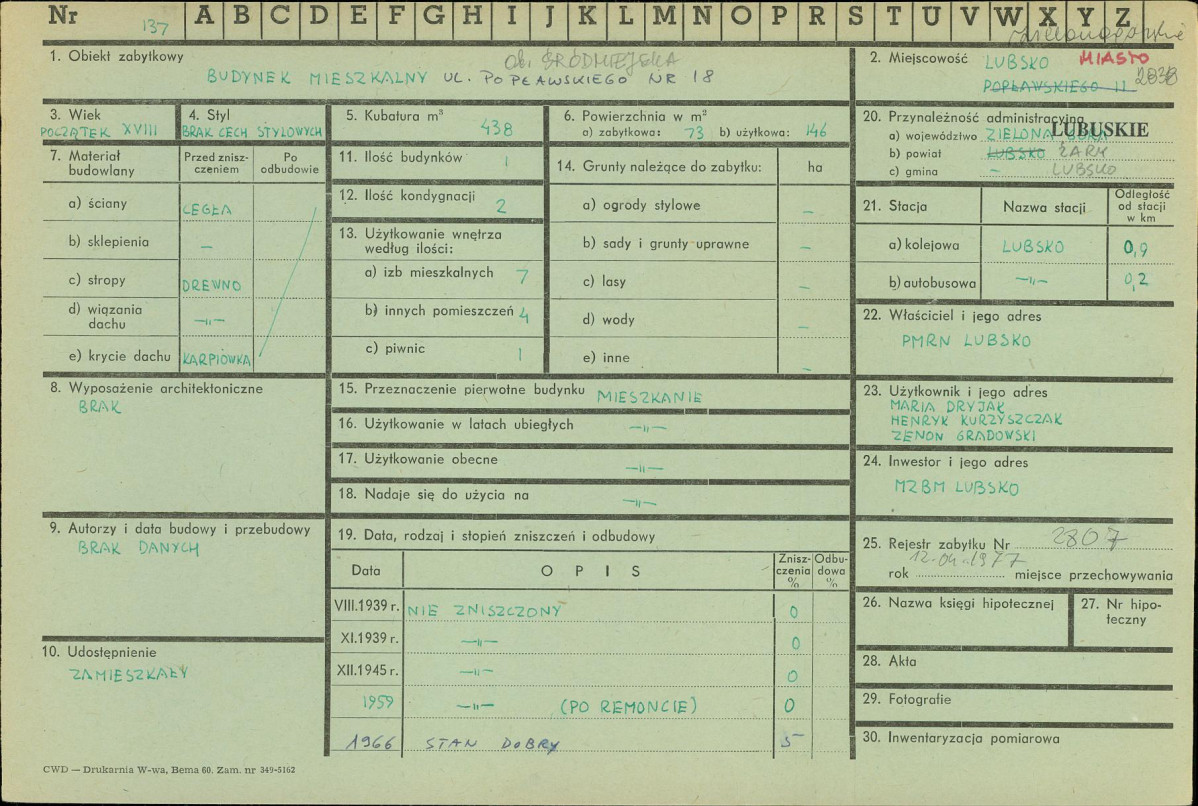 Nr 137 A B C D E F G H I J K L M N O P R S T U V W X Y Z
1. Obiekt zabytkowy ob. ŚRÓDMIEJSKA
BUDYNEK MIESZKALNY UL. POPŁAWSKIEGO NR 18
2. Miejscowość LUBSKO MIASTO
POPŁAWSKIEGO 11
3. Wiek
POCZĄTEK XVIII
4. Styl
BRAK CECH STYLOWYCH
5. Kubatura m³ 438
6. Powierzchnia w m²
a) zabytkowa: 73 b) użytkowa: 146
20. Przynależność administracyjna
a) województwo ZIELONA GÓRA LUBUSKIE
b) powiat LUBSKO ŻARY
c) gmina – LUBSKO
7. Materiał budowlany
Przed zniszczeniem
Po odbudowie
a) ściany CEGŁA
b) sklepienia –
c) stropy DREWNO
d) wiązania dachu –„–
e) krycie dachu KARPIÓWKA
11. Ilość budynków 1
12. Ilość kondygnacji 2
13. Użytkowanie wnętrza
według ilości:
a) izb mieszkalnych 7
b) innych pomieszczeń 4
c) piwnic 1
14. Grunty należące do zabytku: ha
a) ogrody stylowe –
b) sady i grunty uprawne –
c) lasy –
d) wody –
e) inne –
21. Stacja Nazwa stacji Odległość od stacji w km
a) kolejowa LUBSKO 0,9
b) autobusowa –„– 0,2
22. Właściciel i jego adres
PMRN LUBSKO
8. Wyposażenie architektoniczne
BRAK
15. Przeznaczenie pierwotne budynku MIESZKANIE
16. Użytkowanie w latach ubiegłych –„–
17. Użytkowanie obecne –„–
18. Nadaje się do użycia na –„–
23. Użytkownik i jego adres
MARIA DRYJAK
HENRYK KURZYSZCZAK
ZENON GRADOWSKI
24. Inwestor i jego adres
MZBM LUBSKO
9. Autorzy i data budowy i przebudowy
BRAK DANYCH
19. Data, rodzaj i stopień zniszczeń i odbudowy
Data OPIS Zniszczenia % Odbudowa %
VIII.1939 r. NIE ZNISZCZONY 0
XI.1939 r. –„– 0
XII.1945 r. –„– 0
1959 –„– (PO REMONCIE) 0
1966 STAN DOBRY 5
25. Rejestr zabytku Nr 2807
12.04.1977
rok miejsce przechowywania
26. Nazwa księgi hipotecznej
27. Nr hipoteczny
10. Udostępnienie
ZAMIESZKAŁY
28. Akta
29. Fotografie
30. Inwentaryzacja pomiarowa
CWD — Drukarnia W-wa, Bema 60. Zam. nr 349-5162